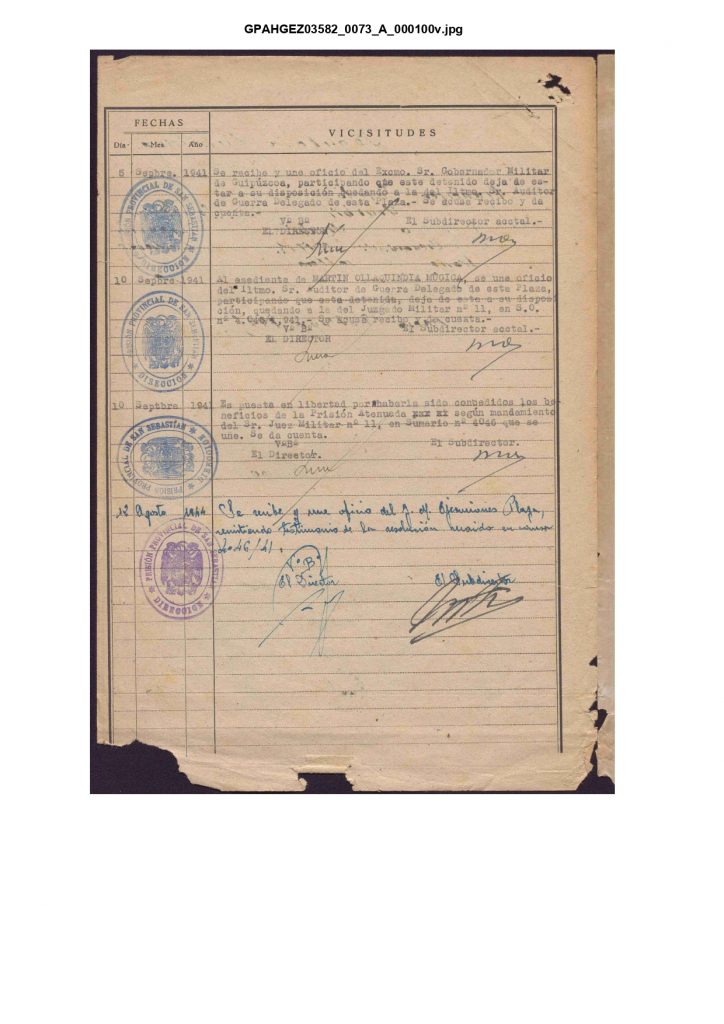 GPAHGEZ03582_0073_A_000100v.jpg
FECHAS
VICISITUDES
Día Mes Año
5 Sepbre. 1941 Se recibe y une oficio del Excmo. Sr. Gobernador Militar
de Guipúzcoa, participando que este detenido deja de es-
tar a su disposición quedando a la del Iltmo. Sr. Auditor
de Guerra Delegado de esta Plaza.- Se acusa recibo y da
cuenta.-
Vº Bº El Subdirector acctal.-
EL DIRECTOR
PRISIÓN PROVINCIAL DE SAN SEBASTIÁN * DIRECCION *
10 Sepbre 1941 Al expediente de MARTIN OLLAQUINDIA MUGICA, se une oficio
del Iltmo. Sr. Auditor de Guerra Delegado de esta Plaza,
participando que esta detenida, deja de esta a su disposi
ción, quedando a la del Juzgado Militar nº 11, en S.O.
nº 4.046/1.941.- Se acusa recibo y da cuenta.-
VºBº El Subdirector acctal.-
EL DIRECTOR
PRISIÓN PROVINCIAL DE SAN SEBASTIÁN * DIRECCION *
10 Septbre 1941 Es puesta en libertad por habarla sido conbedidos los be-
neficios de la Prisión Atenuada según mandamiento
del Sr. Juez Militar nº 11, en Sumario nº 4046 que se
une. Se da cuenta.
VºBº El Subdirector.
El Director.
PRISIÓN PROVINCIAL DE SAN SEBASTIÁN * DIRECCION *
12 Agosto 1944 Se recibe y une oficio del J. de Ejecuciones Plaza,
remitiendo testimonio de la resolución recaida en causa
4046/41.
Vº Bº
El Director El Subdirector
PRISIÓN PROVINCIAL DE SAN SEBASTIÁN * DIRECCION *